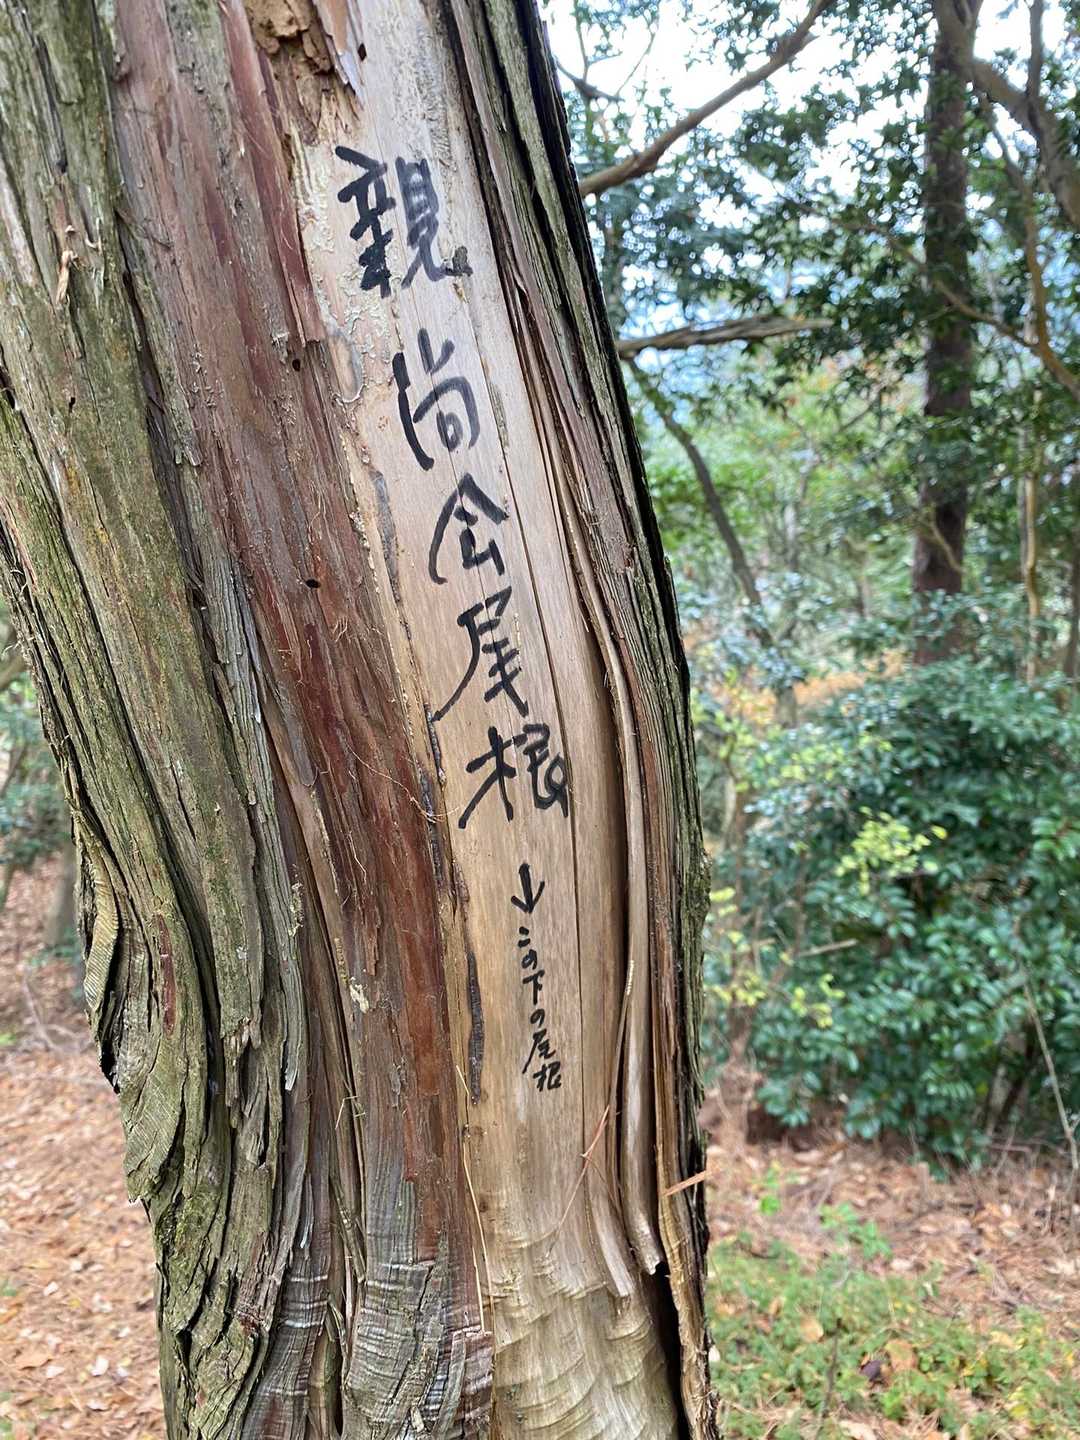 親尚会尾根
↓この下の尾根